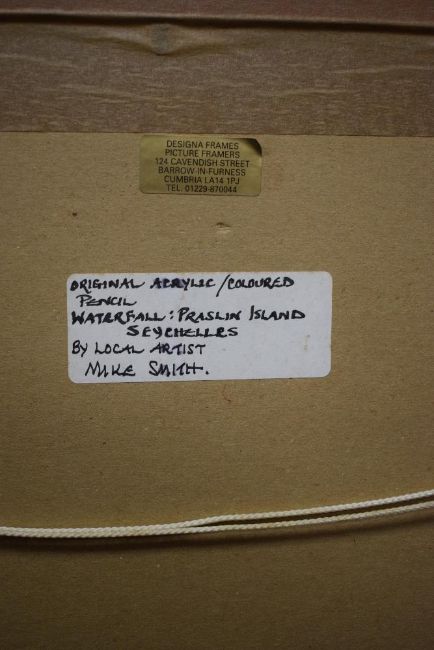 DESIGNA FRAMES
PICTURE FRAMERS
124 CAVENDISH STREET
BARROW-IN-FURNESS
CUMBRIA LA14 1PJ
TEL. 01229-870044
ORIGINAL ACRYLIC/COLOURED
PENCIL
WATERFALL: PRASLIN ISLAND
SEYCHELLES
BY LOCAL ARTIST
MIKE SMITH.